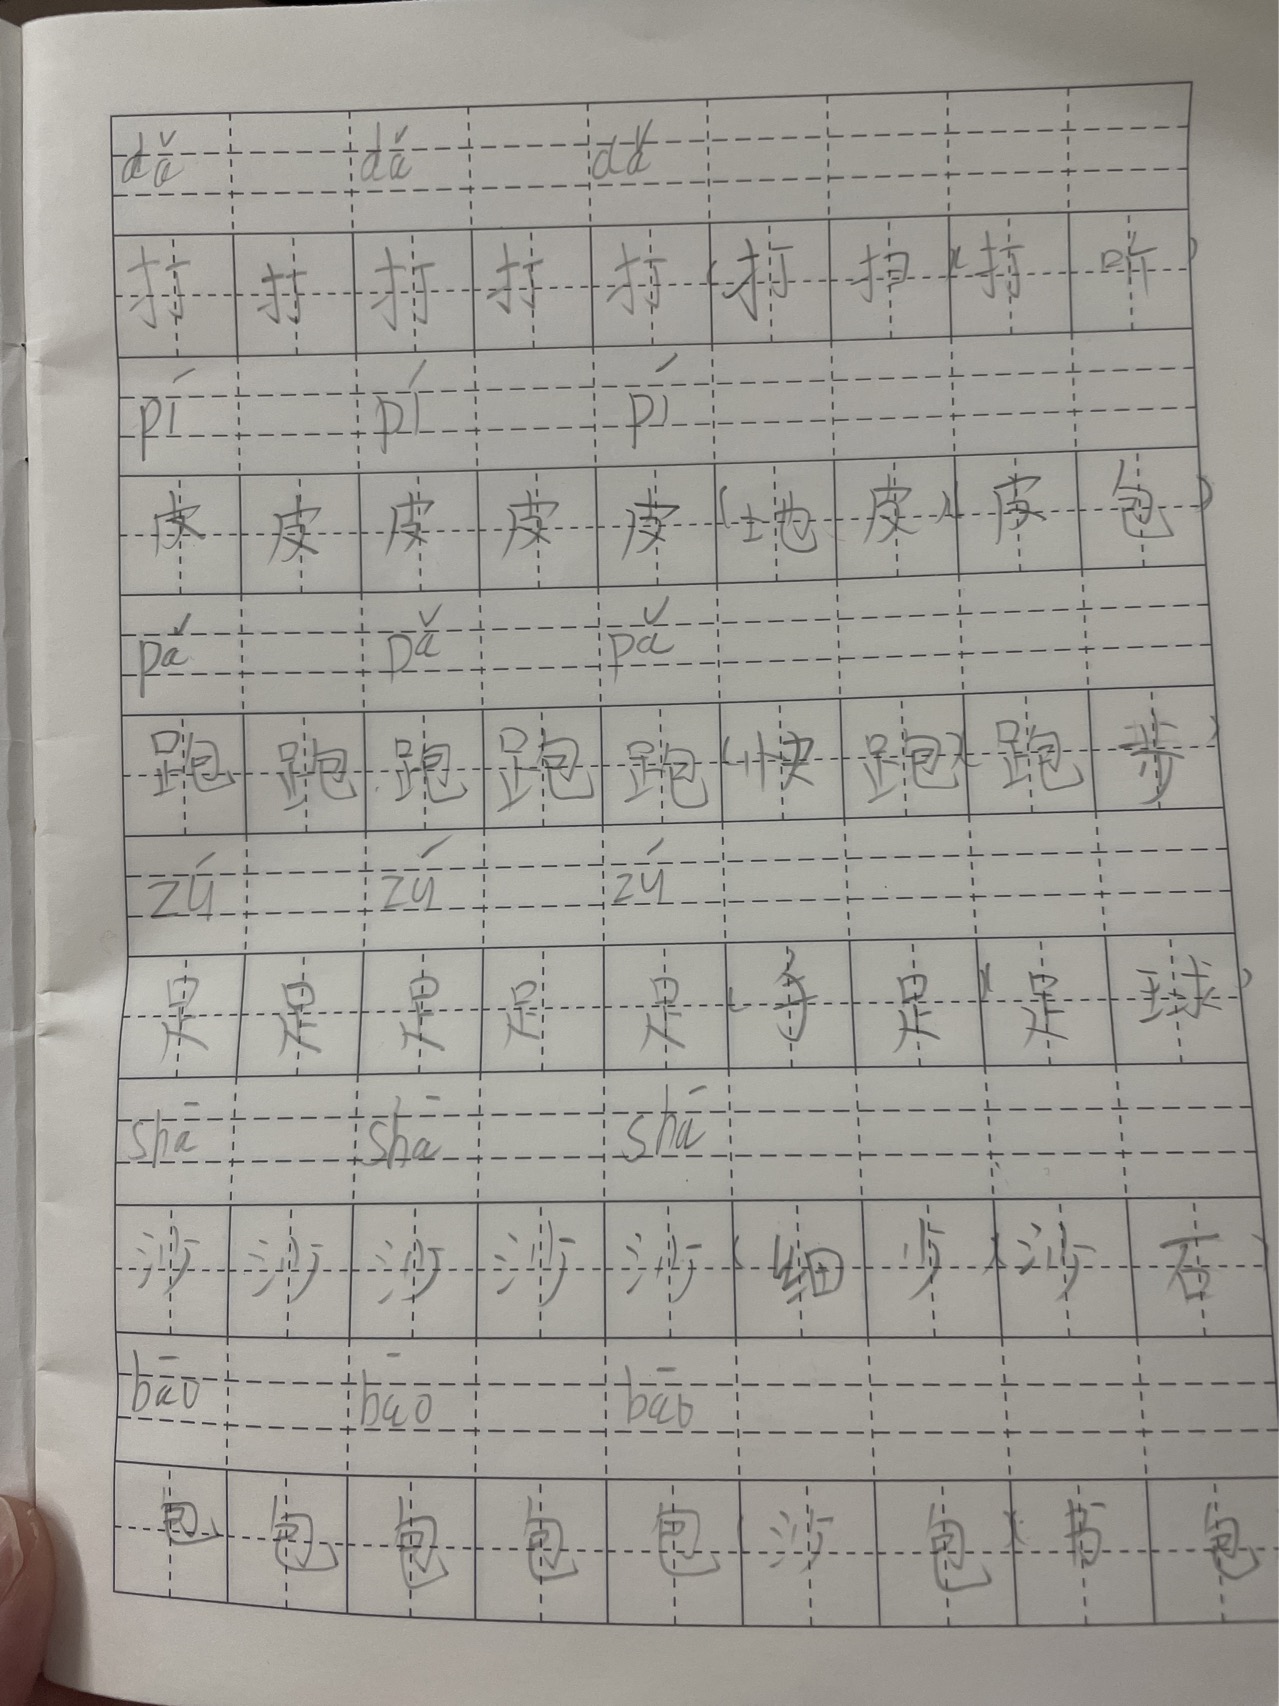 dǎ dǎ dǎ
打 打 打 打 打 (打 扫)(打 听)
pí pí pí
皮 皮 皮 皮 皮 (地 皮)(皮 包)
pǎ pǎ pǎ
跑 跑 跑 跑 跑 (快 跑)(跑 步)
zú zú zú
足 足 足 足 足 (手 足)(足 球)
shā shā shā
沙 沙 沙 沙 沙 (细 沙)(沙 石)
bāo bāo bāo
包 包 包 包 包 (沙 包)(书 包